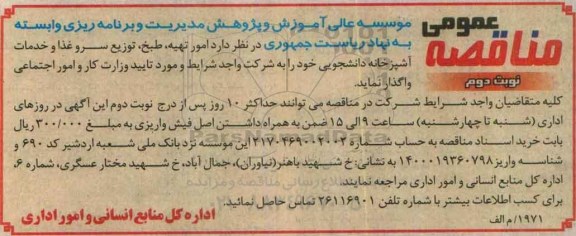 مناقصه عمومی
نوبت دوم
موسسه عالی آموزش و پژوهش مدیریت و برنامه ریزی وابسته
به نهاد ریاست جمهوری در نظر دارد امور تهیه، طبخ، توزیع سرو غذا و خدمات
آشپزخانه دانشجویی خود را به شرکت واجد شرایط و مورد تایید وزارت کار و امور اجتماعی
واگذار نماید.
کلیه متقاضیان واجد شرایط شرکت در مناقصه می توانند حداکثر ۱۰ روز پس از درج نوبت دوم این آگهی در روزهای
اداری (شنبه تا چهارشنبه) ساعت ۹ الی ۱۵ ضمن به همراه داشتن اصل فیش واریزی به مبلغ ۳۰۰/۰۰۰ ریال
بابت خرید اسناد مناقصه به حساب شماره ۲۱۷۰۲۶۹۰۰۲۰۰۲ این موسسه نزد بانک ملی شعبه اردشیر کد ۶۹۰ و
شناسه واریز ۱۴۰۰۰۱۹۳۶۰۷۹۸ به نشانی: خ شهید باهنر (نیاوران)، جمال آباد، خ شهید مختار عسگری، شماره ۶،
اداره کل منابع انسانی و امور اداری مراجعه نمایند.
برای کسب اطلاعات بیشتر با شماره تلفن ۲۶۱۱۶۹۰۱ تماس حاصل نمائید.
۱۹۷۱/م الف
اداره کل منابع انسانی و امور اداری
ParsNamadData